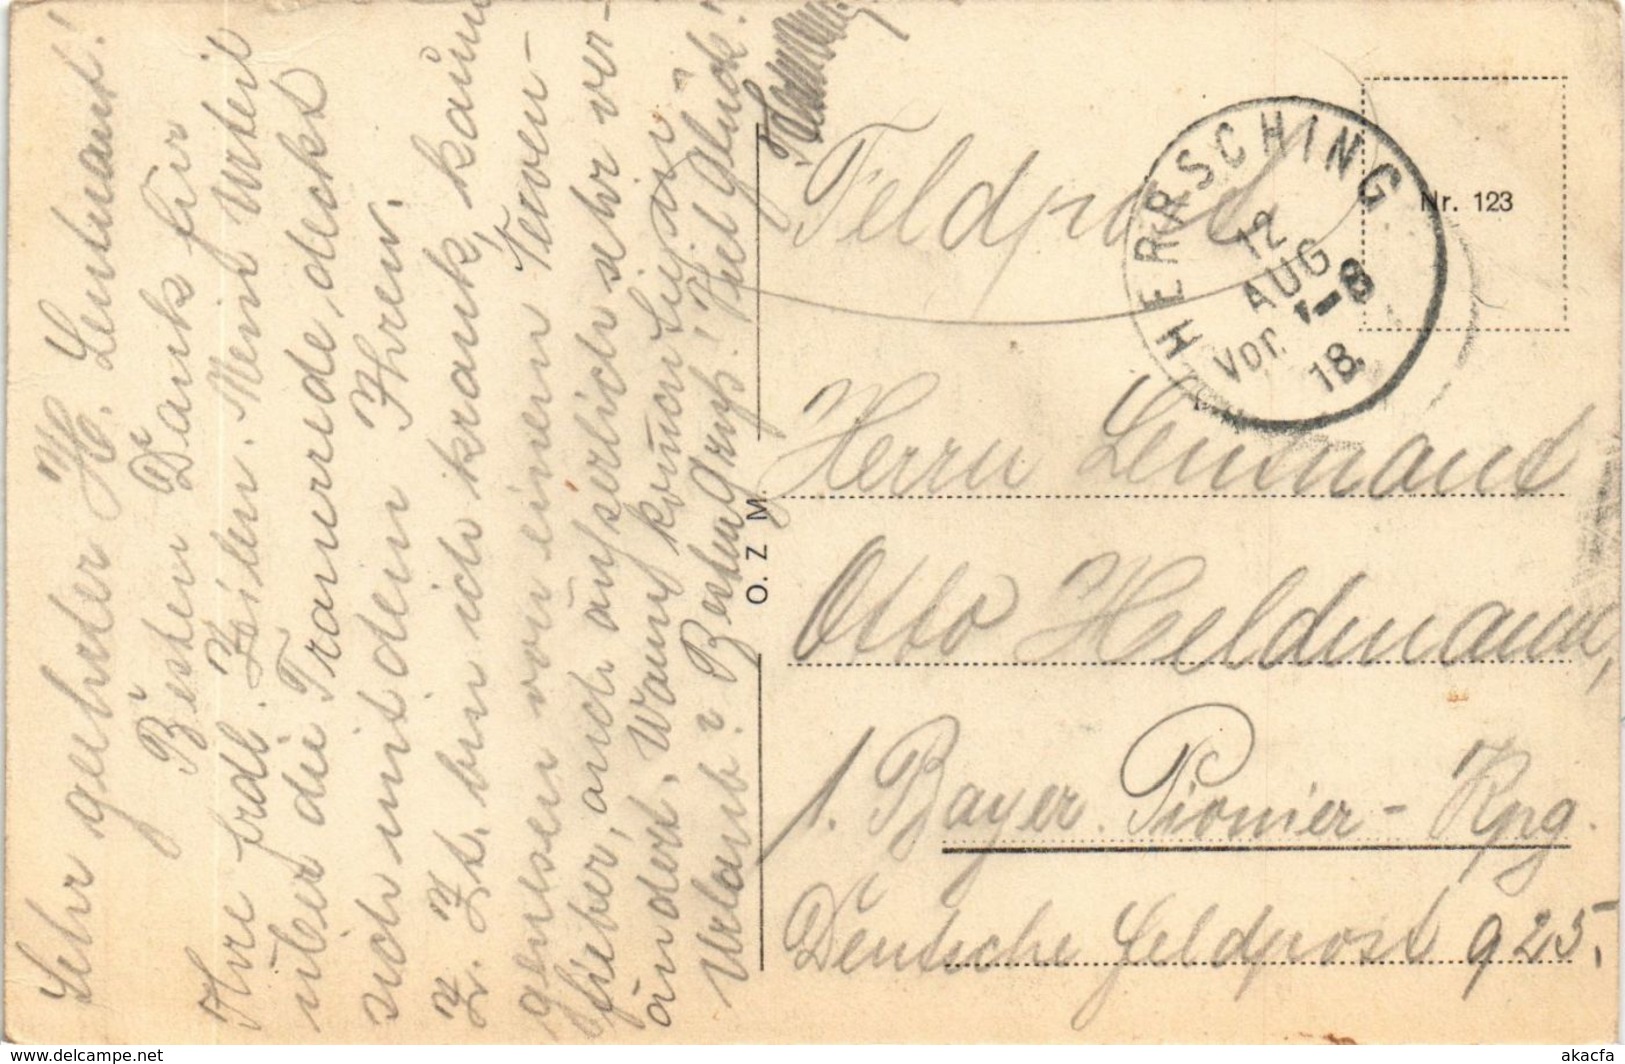 Sehr geehrter H. Leutnant!
Besten Dank für
Ihre frdl. Zeilen. Mein Urteil
über die Trauerrede deckt
sich mit dem Ihren.
Z. Zt. bin ich krank, kaum
genesen von einem Nerven-
fieber, auch äusserlich sehr ver-
ändert. Wann kom̄en Sie in
Urlaub? Besten Gruß! Viel Glück!
Feldpost
HERRSCHING
12
AUG
Vor. -8
18.
Nr. 123
O. Z. M.
Herrn Leutnant
Otto Heldmann,
1. Bayer. Pionier-Kpg.
Deutsche Feldpost 925.
www.delcampe.net
akacfa